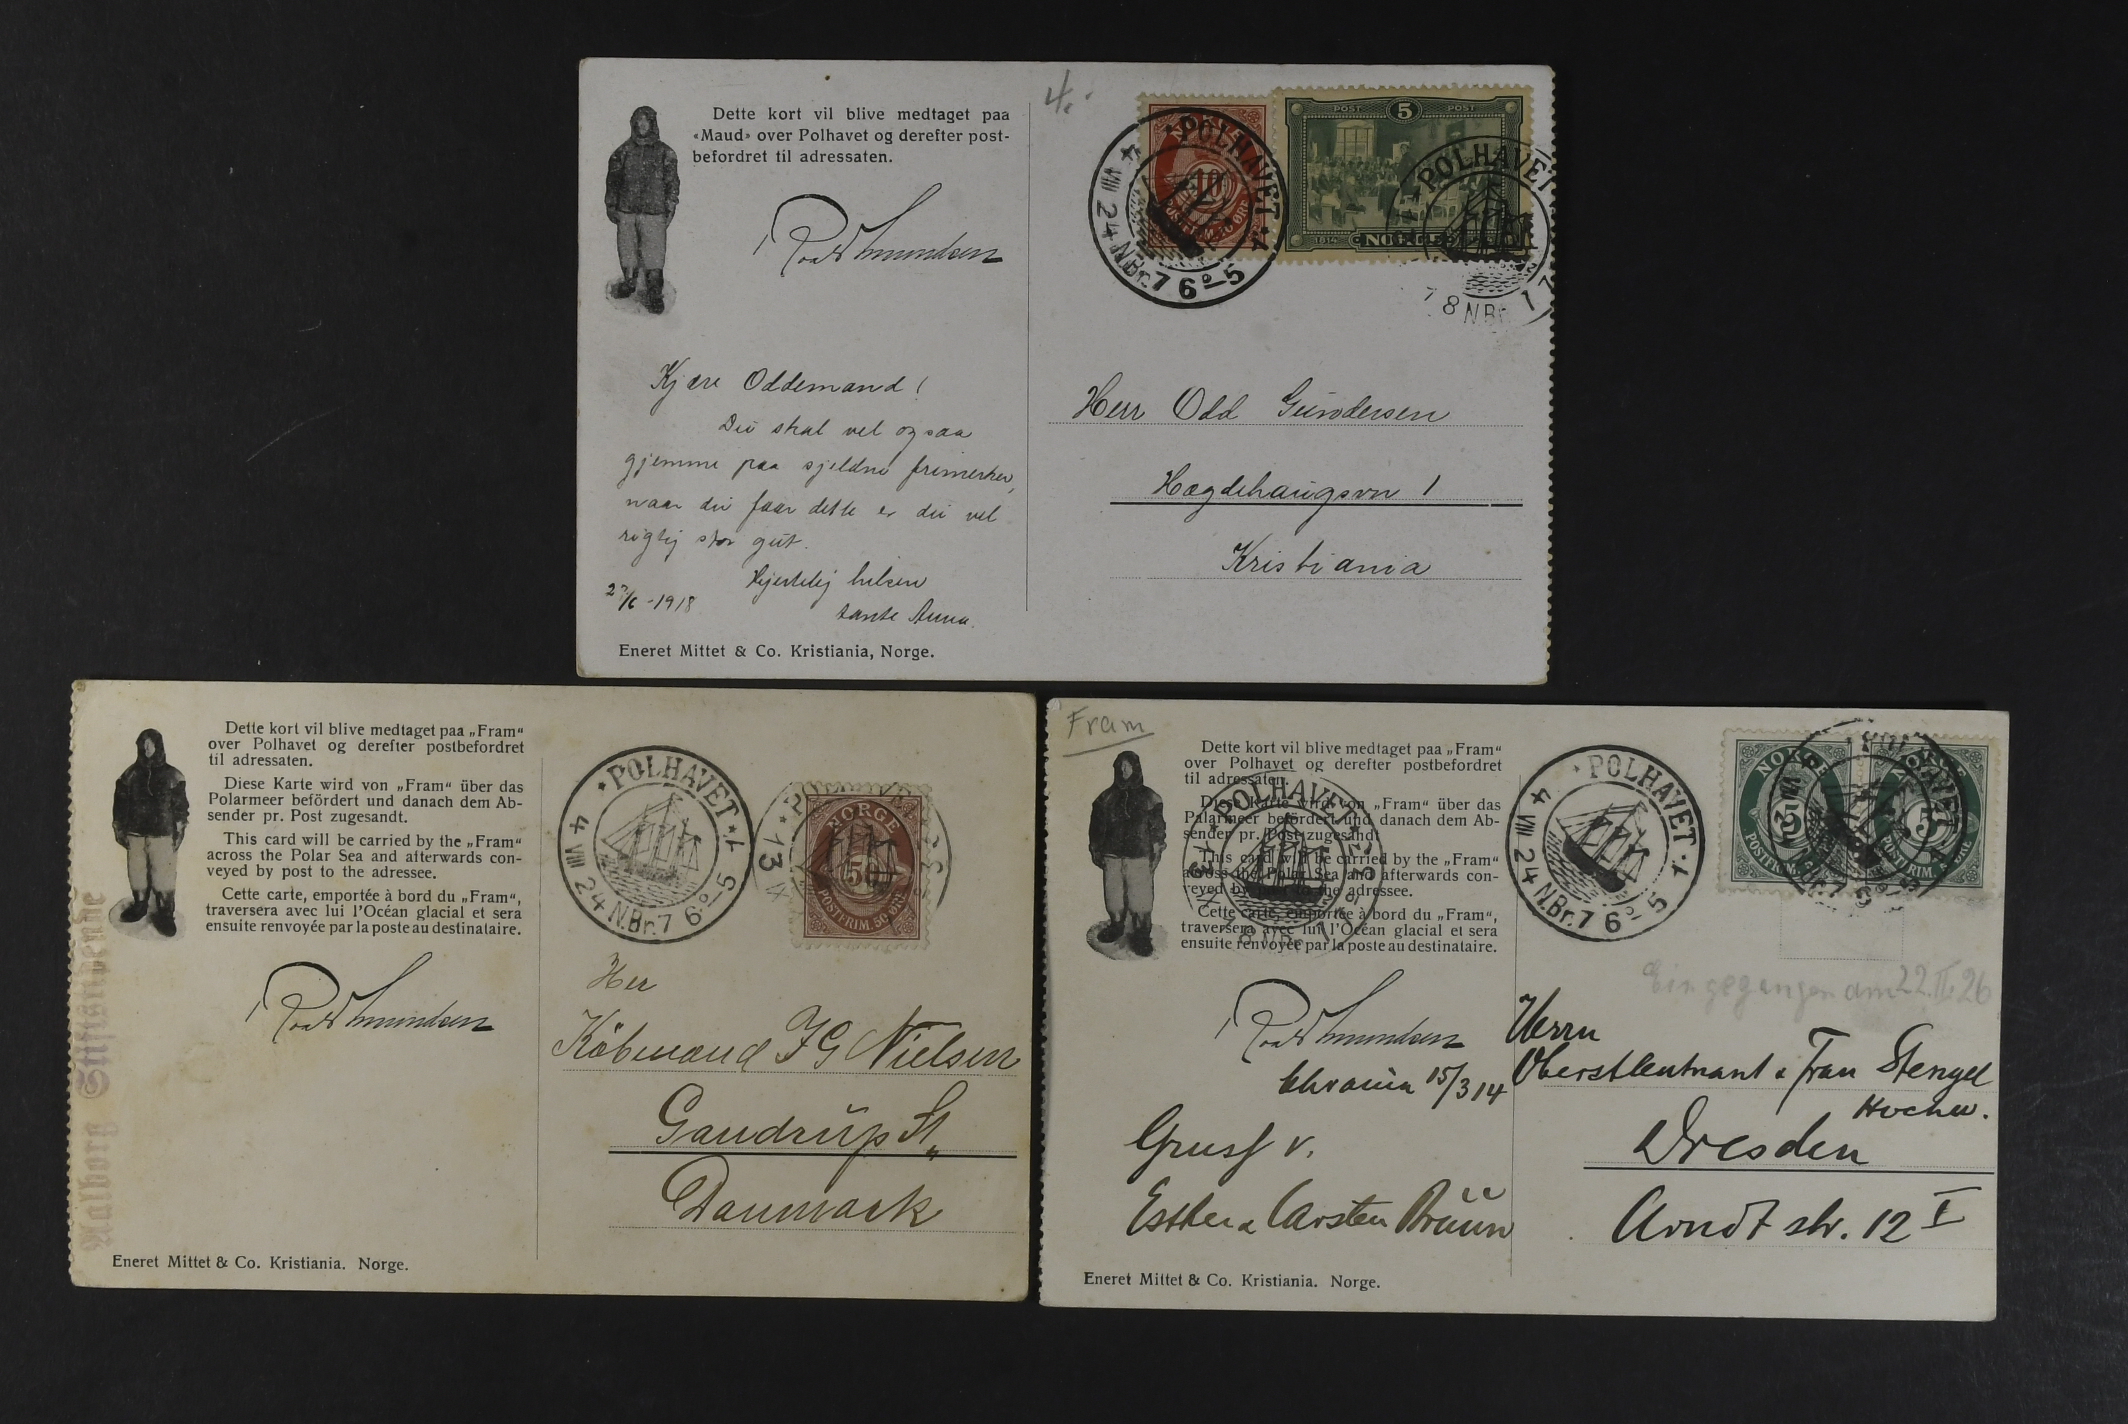 Dette kort vil blive medtaget paa
«Maud» over Polhavet og derefter post-
befordret til adressaten.
Roald Amundsen
Kjære Oddemand!
Du skal vel ogsaa
gjemme paa sjeldne frimerker,
naar du faar dette er du vel
rigtig stor gut.
Hjertelig hilsen
tante Anna.
27/6 - 1918
Eneret Mittet & Co. Kristiania, Norge.
4.
NORGE
10
POSTFRIM. 10 ØRE
POST 5 POST
1814 NORGE
*POLHAVET*1
4 VIII 24 N.Br. 76°-5
POLHAVET
78 N.Br. 17
Herr Odd Gundersen
Hægdehaugsvn 1
Kristiania
Dette kort vil blive medtaget paa „Fram“
over Polhavet og derefter postbefordret
til adressaten.
Diese Karte wird von „Fram“ über das
Polarmeer befördert und danach dem Ab-
sender pr. Post zugesandt.
This card will be carried by the „Fram“
across the Polar Sea and afterwards con-
veyed by post to the adressee.
Cette carte, emportée à bord du „Fram“,
traversera avec lui l'Océan glacial et sera
ensuite renvoyée par la poste au destinataire.
Roald Amundsen
Aalborg Stiftstidende
Eneret Mittet & Co. Kristiania. Norge.
*POLHAVET*1
4 VIII 24 N.Br. 76°-5
NORGE
50
POSTFRIM. 50 ØRE
13
Her
Købmand J G Nielsen
Gandrup St.
Danmark
Fram
Dette kort vil blive medtaget paa „Fram“
over Polhavet og derefter postbefordret
til adressaten.
Diese Karte wird von „Fram“ über das
Polarmeer befördert und danach dem Ab-
sender pr. Post zugesandt
This card will be carried by the „Fram“
across the Polar Sea and afterwards con-
veyed by post to the adressee.
Cette carte, emportée à bord du „Fram“,
traversera avec lui l'Océan glacial et sera
ensuite renvoyée par la poste au destinataire.
POLHAVET
Roald Amundsen
Chrania 15/3 14
Gruss v.
Esther & Carsten Bruun
Eneret Mittet & Co. Kristiania. Norge.
*POLHAVET*1
4 VIII 24 N.Br. 76°-5
NORGE
5
POSTFRIM. 5 ØRE
NORGE
5
POSTFRIM. 5 ØRE
Eingegangen am 22.II.26
Herrn
Oberstleutnant & Frau Stengel
Hochw.
Dresden
Arndt str. 12 I